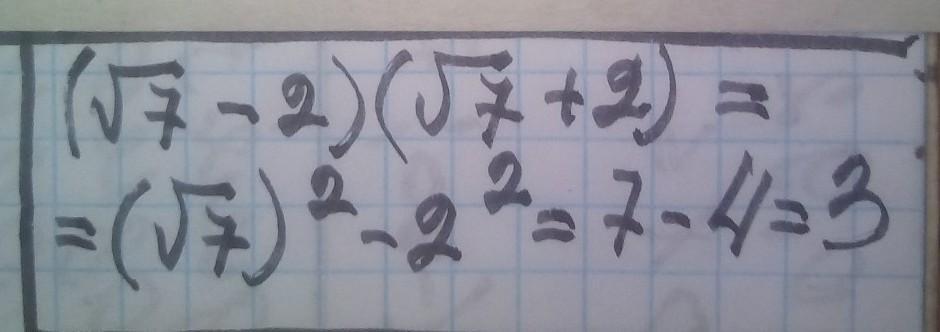 (√7 - 2)(√7 + 2) =
= (√7)² - 2² = 7 - 4 = 3